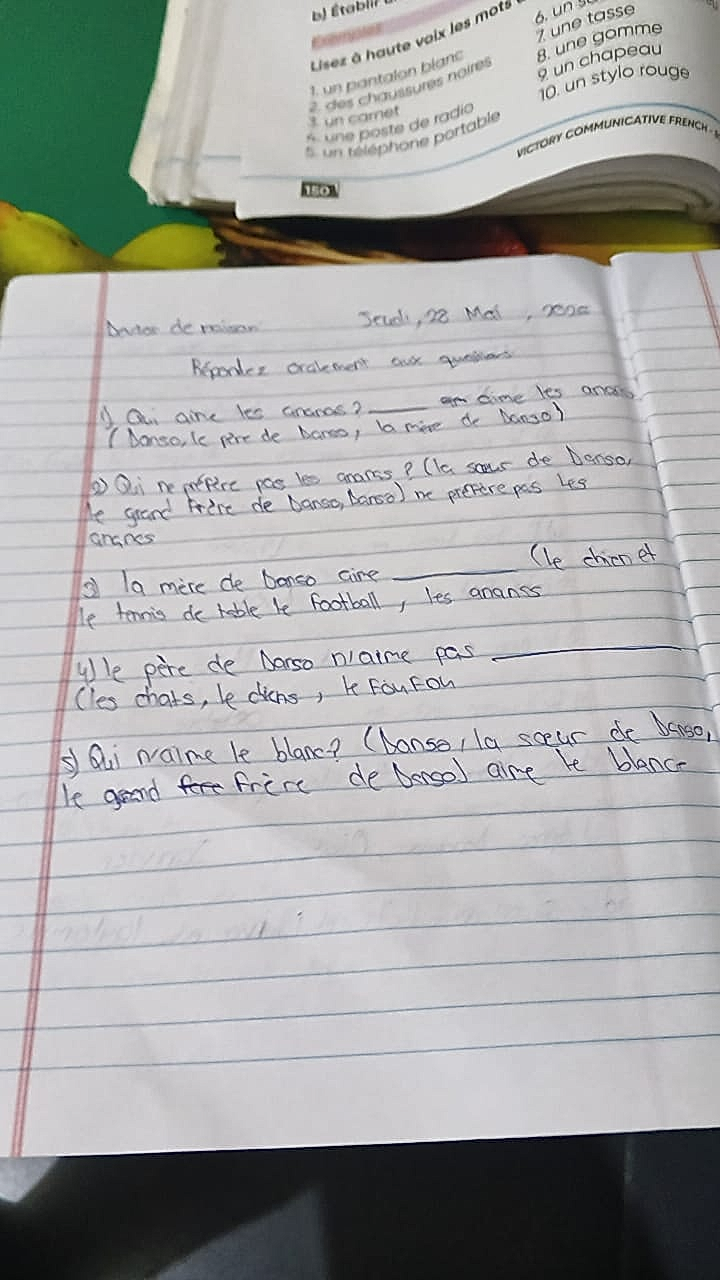 b) Établir
Exemples
Lisez à haute voix les mots
1. un pantalon blanc
2. des chaussures noires
3. un carnet
4. une poste de radio
5. un téléphone portable
6. un
7. une tasse
8. une gomme
9. un chapeau
10. un stylo rouge
VICTORY COMMUNICATIVE FRENCH
150
de maison Jeudi, 28 Mai,
Répondez oralement aux questions
1) Qui aime les ananas? ______ aime les ananas
(Danso, le père de Danso, la mère de Danso)
2) Qui ne préfère pas les ananas? (la sœur de Danso,
le grand Frère de Danso, Danso) ne préfère pas les
ananas
3) la mère de Danso aime ______ (le chien et
le tennis de table le football, les ananss
4) le père de Danso n'aime pas ______
(les chats, le chiens, le FouFou
5) Qui n'aime le blanc? (Danso, la sœur de Danso,
le grand frère de Danso) aime le blance